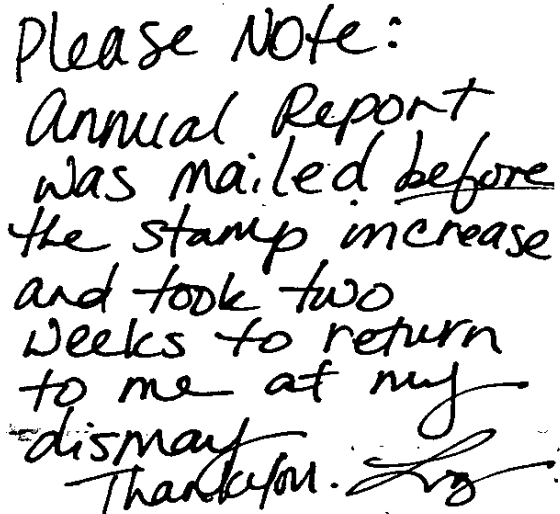 Please Note:
Annual Report
was mailed before
the stamp increase
and took two
weeks to return
to me at my
dismay
Thankyou. Liz